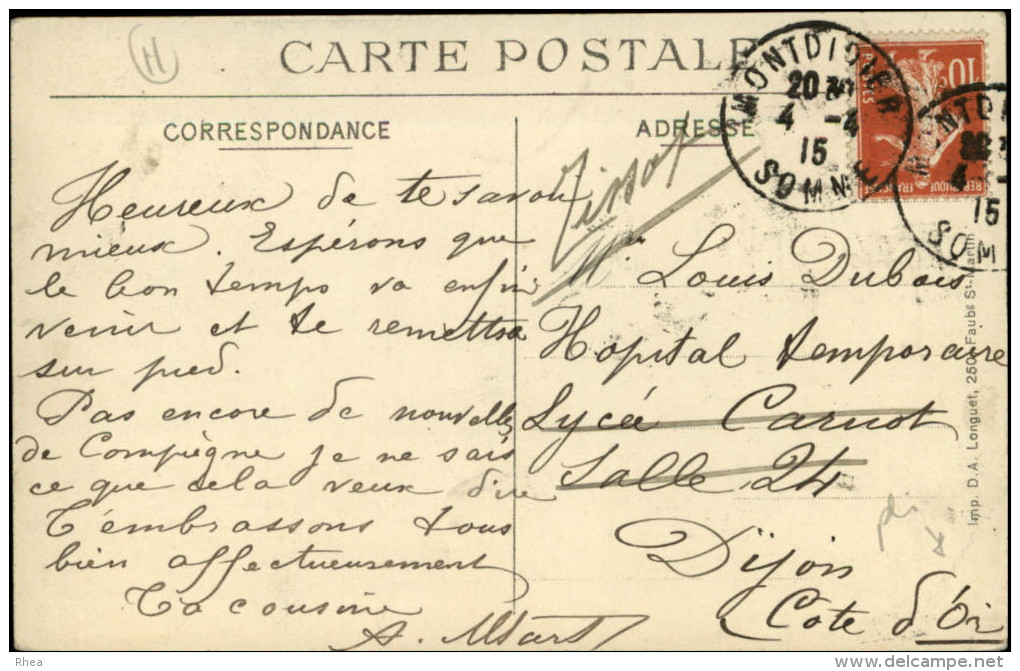 H
CARTE POSTALE
MONTDIDIER
20 30
4 -4
15
SOMME
10
RÉPUBLIQUE FRANÇAISE
MONTDI
4 -
15
SOM
CORRESPONDANCE
Heureux de te savoir
mieux. Espérons que
le bon temps va enfin
venir et te remettra
sur pied.
Pas encore de nouvelles
de Compiègne je ne sais
ce que cela veux dire
T'embrassons tous
bien affectueusement
Ta cousine
A.
ADRESSE
Tissot
Mr Louis Dubois
Hopital temporaire
Lycée Carnot
Salle 24
Dijon
Cote d'Or
Imp. D.A. Longuet, 250, Faubg St-Martin
Rhea
delcampe.net